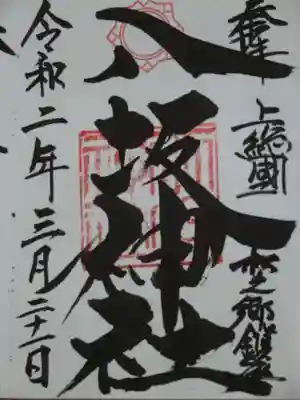 奉拝 上総國 埜之郷鎮座
八坂神社
令和二年三月二十一日